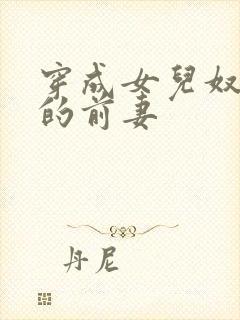 穿成女兒奴
的前妻
丹尼